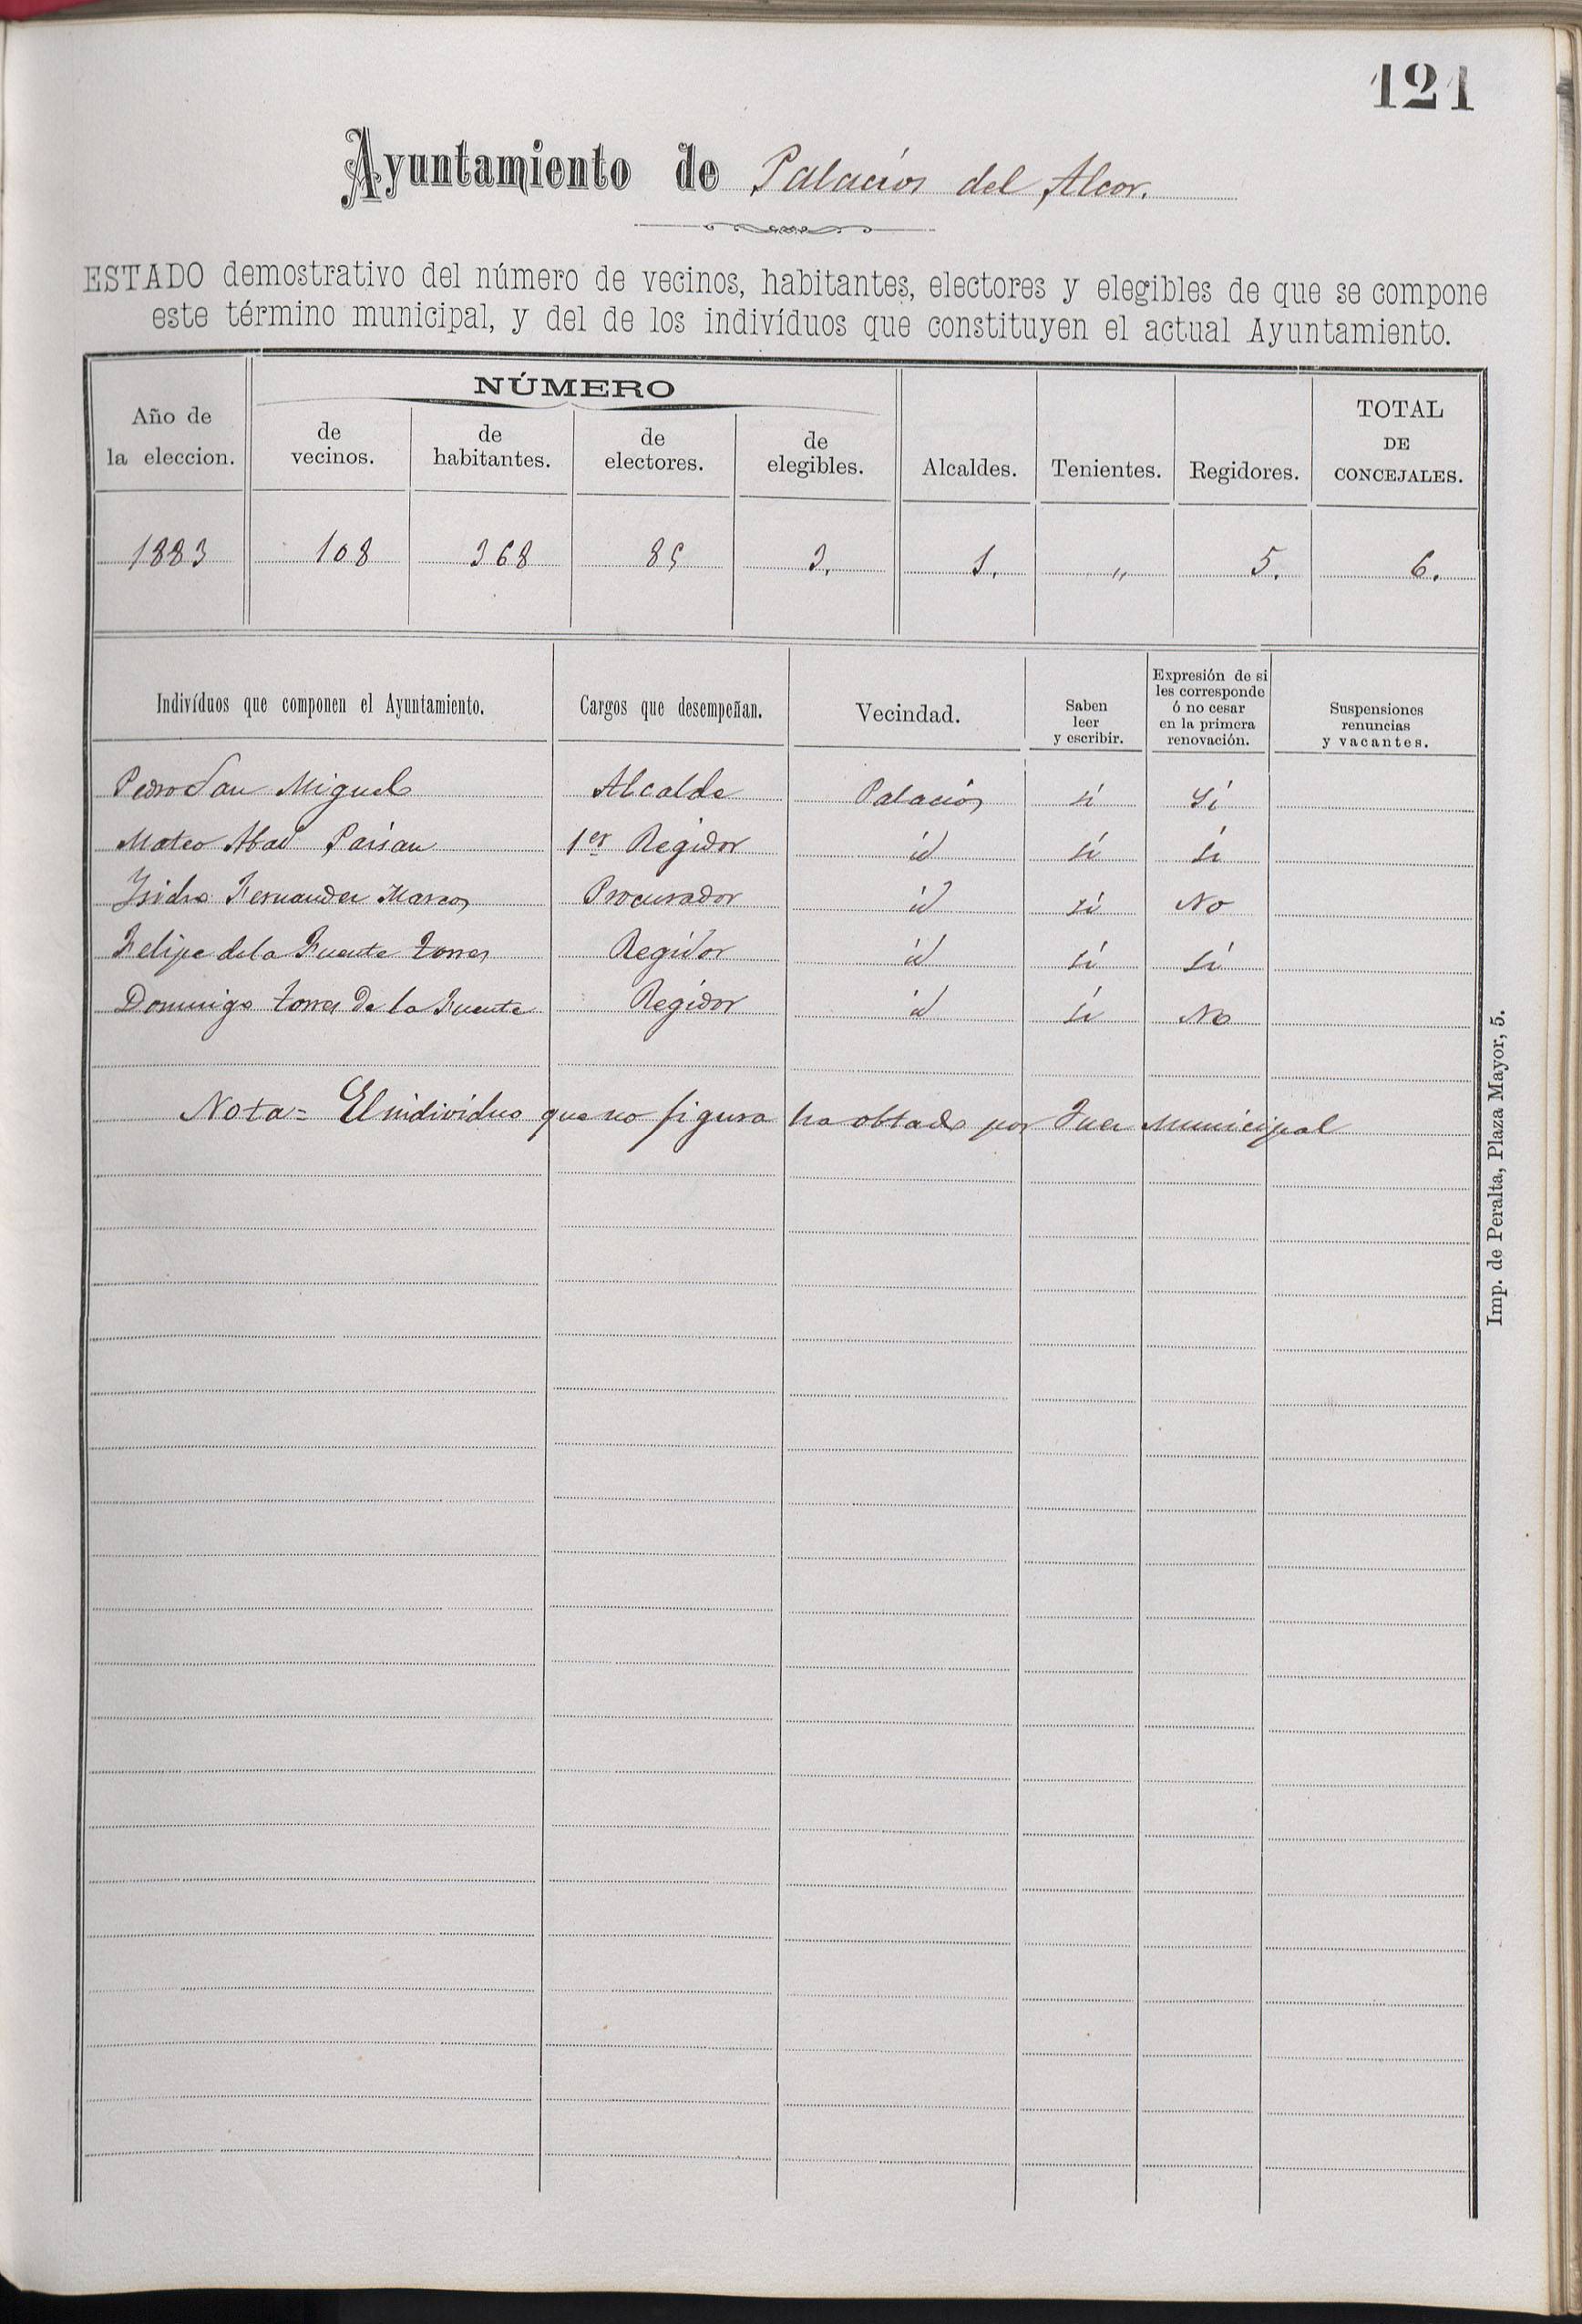 121
Ayuntamiento de Palacios del Alcor.
ESTADO demostrativo del número de vecinos, habitantes, electores y elegibles de que se compone
este término municipal, y del de los indivíduos que constituyen el actual Ayuntamiento.
Año de la eleccion.
NÚMERO
de vecinos.
de habitantes.
de electores.
de elegibles.
Alcaldes.
Tenientes.
Regidores.
TOTAL DE CONCEJALES.
1883 108 368 85 3. 1. " 5. 6.
Indivíduos que componen el Ayuntamiento.
Cargos que desempeñan.
Vecindad.
Saben
leer
y escribir.
Expresión de si
les corresponde
ó no cesar
en la primera
renovación.
Suspensiones
renuncias
y vacantes.
Pedro San Miguel Alcalde Palacios si Si
Mateo Abad 1er Regidor id si si
Isidro Fernandez Marcos Procurador id si No
Felipe de la Fuente torres Regidor id si si
Domingo torres de la Fuente Regidor id si No
Nota= El individuo que no figura ha obtado por Juez Municipal
Imp. de Peralta, Plaza Mayor, 5.